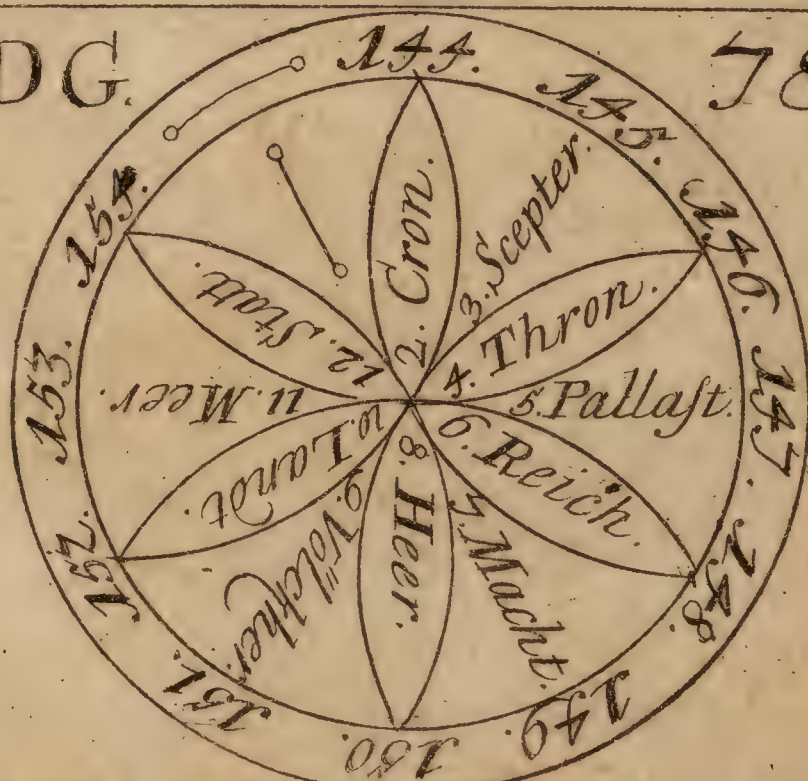 DG.
78
144.
145.
146.
147.
148.
149.
150.
151.
152.
153.
154.
2. Cron.
3. Scepter.
4. Thron.
5. Pallaſt.
6. Reich.
7. Macht.
8. Heer.
9. Völckher.
10. Landt.
11. Meer.
12. Statt.